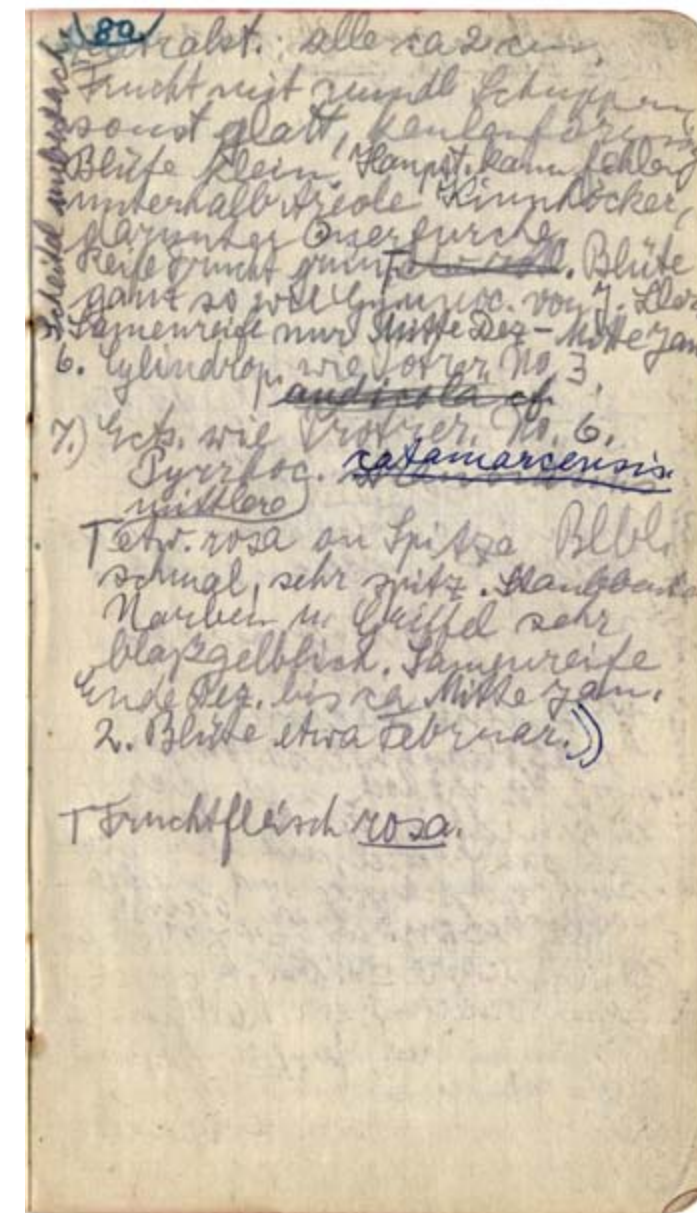 (8a)
Zentralst.: alle ca 2 cm,
Frucht mit rundl Schuppen
sonst glatt, keulenförmig
Blüte klein, Haupst. kann fehlen
unterhalb Areole Kinnhöcker,
darunter Querfurche
Reife Frucht grün. Blüte
ganz so wie Gymnoc. von 7.
Samenreife nur Mitte Dez - Mitte Jan
6. Cylindrop. wie Potrer. No. 3.
andicola cf
7.) Ects. wie Potrer. No. 6.
Pyrrhoc. catamarcensis.
mittlere
T etw. rosa an Spitze Blbl.
schmal, sehr spitz. Staubbeutel
Narben u. Griffel sehr
blaßgelblich. Samenreife
Ende Dez. bis ca Mitte Jan.
2. Blüte etwa Februar.))
T Fruchtfleisch rosa.
Scheitel unbedach